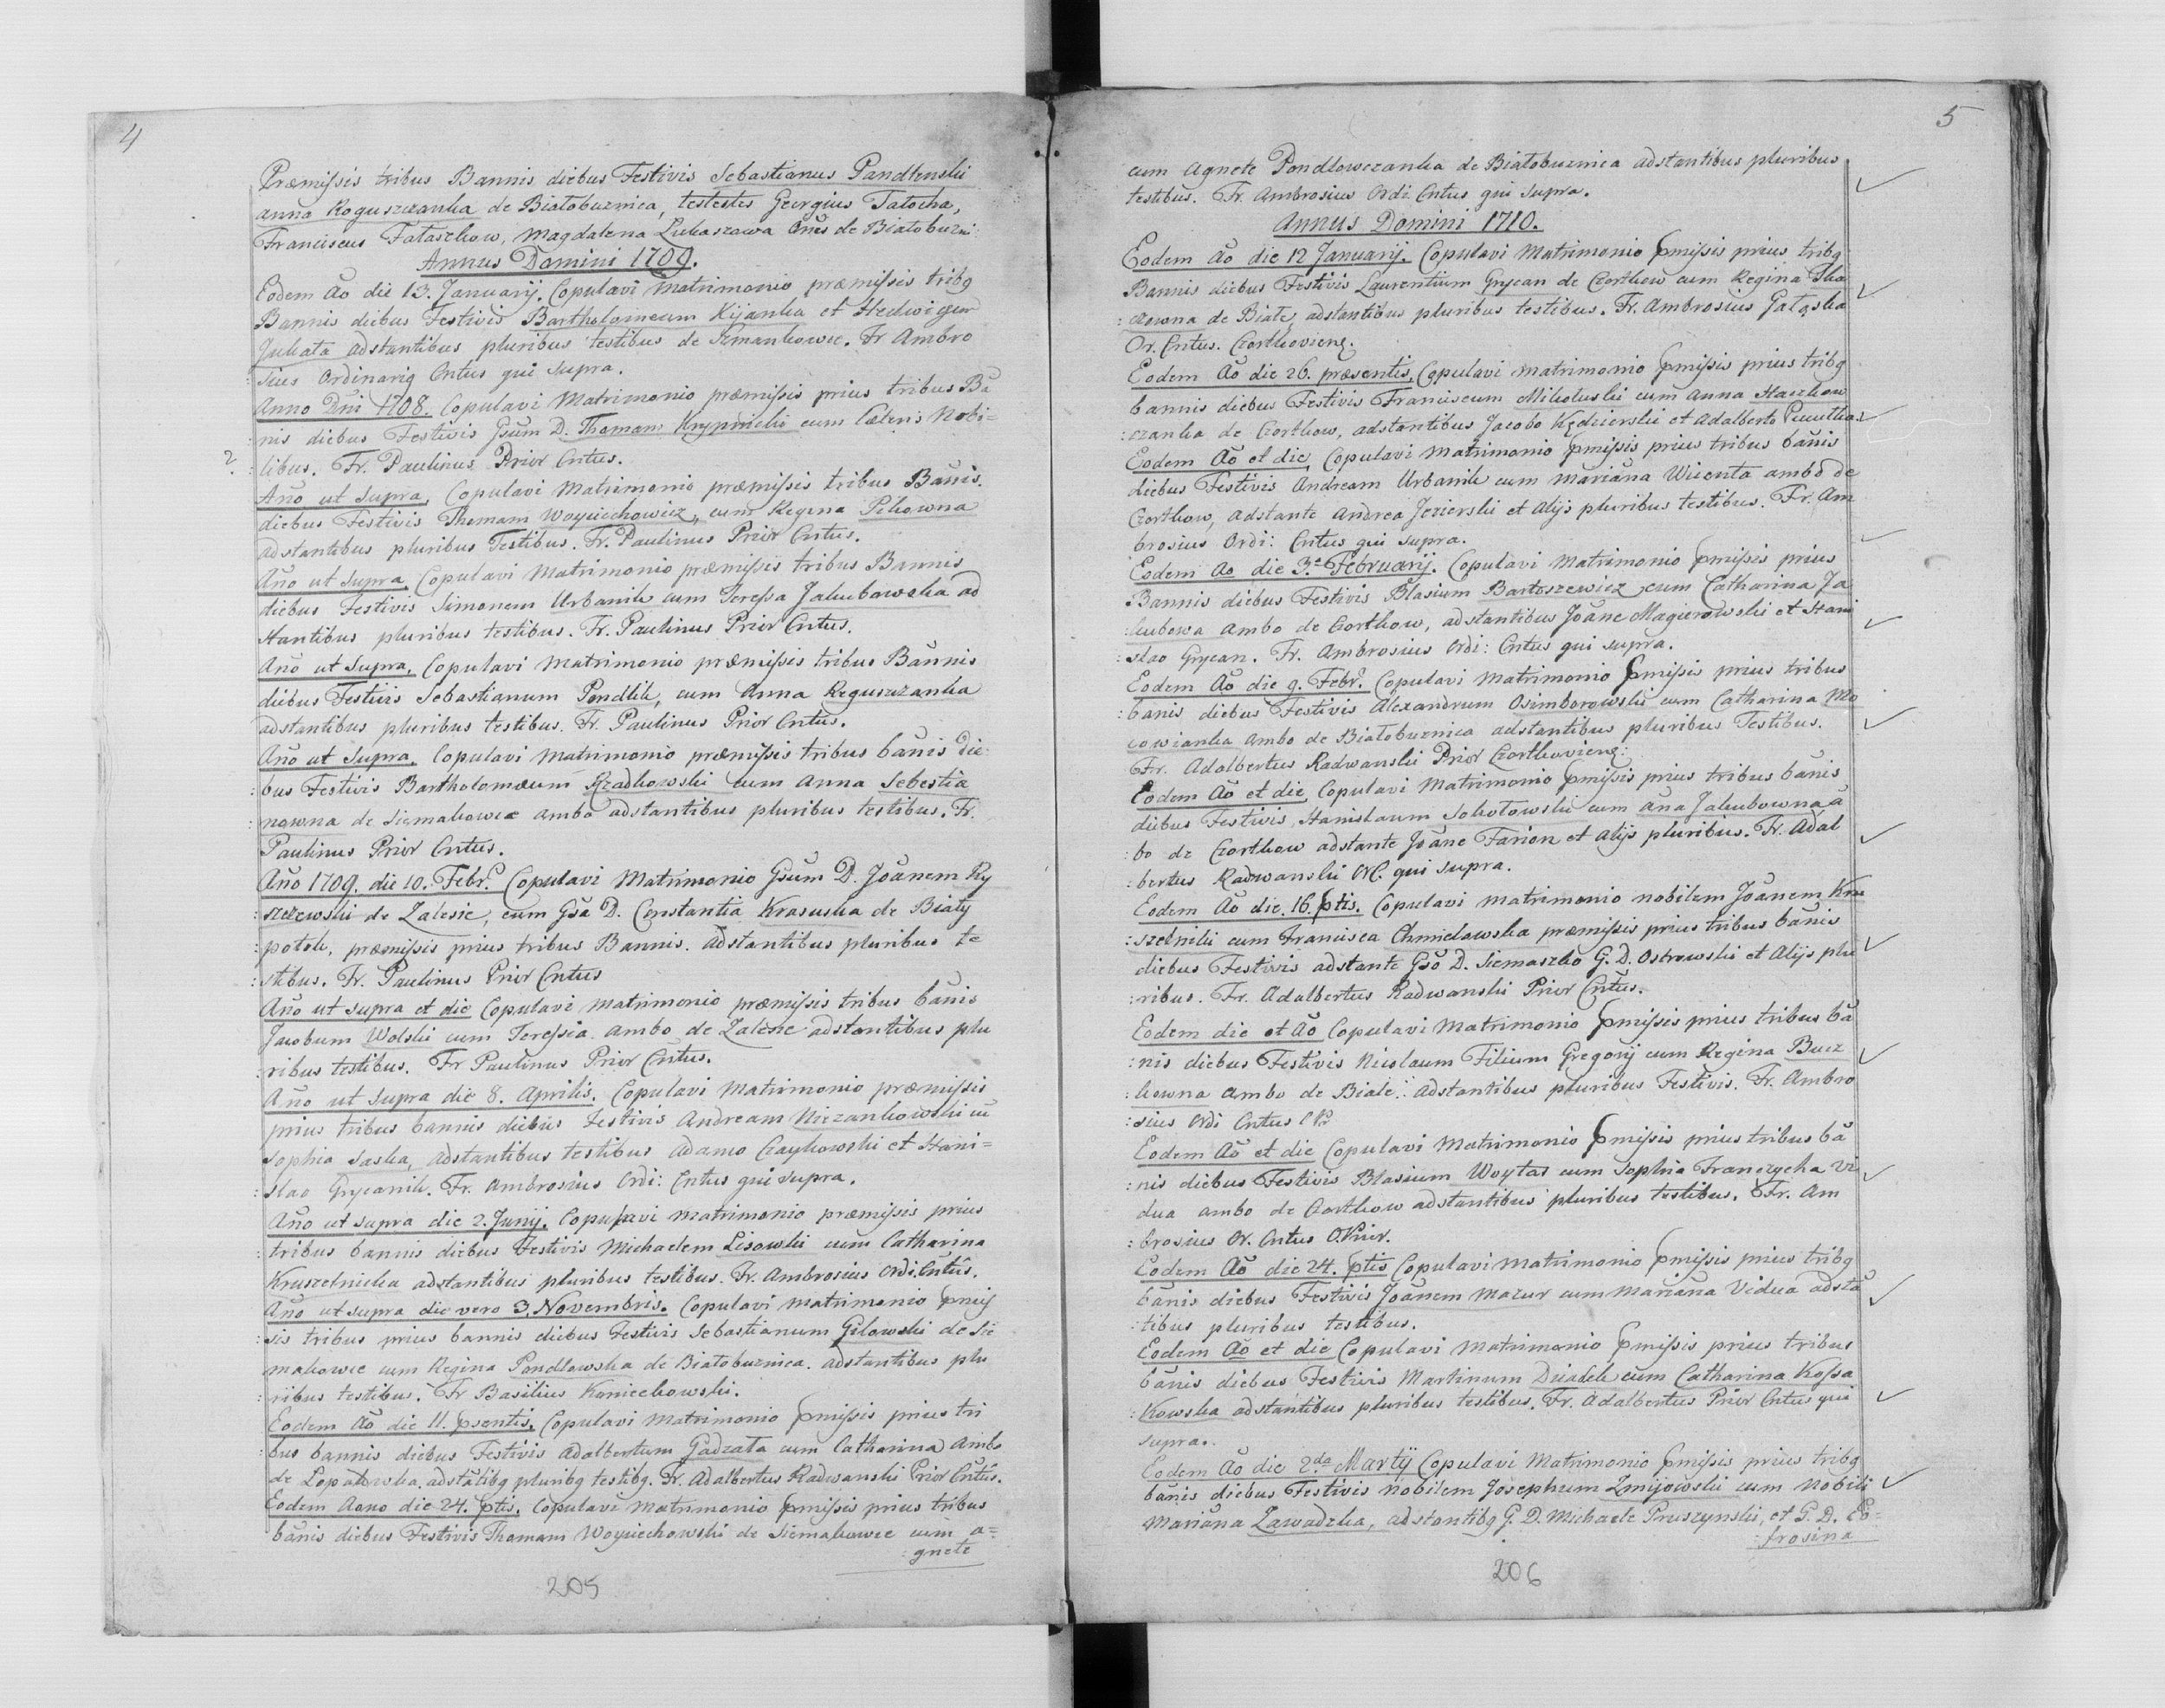 4
Præmissis tribus Bannis diebus Festivis Sebastianus Pandlenski
anna Roguszczanka de Białoboznica, testestes Georgius Tatocha,
Franciscus Fataszkow, Magdalena Lukaszawa Oñes de Białobuzni:
Annus Domini 1709.
Eodem Aõ die 13. Januarij. Copulavi Matrimonio præmissis tribq
Bannis diebus Festivis Bartholomeum Kijanka et Hedwigem
Jukata adstantibus pluribus testibus de Simankowce. Fr Ambro
: sius Ordinariq Cntus qui supra.
Anno Dñi 1708. Copulavi Matrimonio præmissis prius tribus Bã
: nis diebus Festivis Gsum D. Thomam Krypinicki cum Cæteris Nobi=
2. : libus. Fr. Paulinus Prior Cntus.
Año ut supra, Copulavi Matrimonio præmissis tribus Bañis.
diebus Festivis Thomam Woyciechowicz, cum Regina Pikowna
adstantibus pluribus Testibus. Fr. Paulinus Prior Cntus.
Año ut supra, Copulavi Matrimonio præmissis tribus Bannis
diebus Festivis Simonem Urbanik cum Teressa Jakubowska ad
stantibus pluribus testibus. Fr. Paulinus Prior Cntus.
Año ut supra, Copulavi Matrimonio præmissis tribus Bannis
diebus Festivis Sebastianum Pondlik, cum Anna Reguszczanka
adstantibus pluribus testibus. Fr. Paulinus Prior Cntus.
Año ut supra, Copulavi Matrimonio præmissis tribus bañis die:
: bus Festivis Bartholomæum Rzadkowski cum Anna Sebestia
: nowna de Siemakowce ambo adstantibus pluribus testibus. Fr.
Paulinus Prior Cntus.
Año 1709. die 10. Febr. Copulavi Matrimonio Gsum D. Joãnem Ry
: szczewski de Zalesie, cum Gsã D. Constantia Krasuska de Biały
: potok, præmissis prius tribus Bannis. adstantibus pluribus te
: stibus. Fr. Paulinus Prior Cntus
Año ut supra et die Copulavi matrimonio præmissis tribus bañis
Jacobum Wolski cum Teressia ambo de Zalesie adstantibus plu
: ribus testibus. Fr Paulinus Prior Cntus.
Año ut supra die 8. Aprilis. Copulavi Matrimonio præmissis
prius tribus bannis diebus Festivis Andream Niezankowski cũ
Sophia Saska, adstantibus testibus Adamo Czaykowski et Stani=
: slao Grycanik. Fr. Ambrosius Ordi: Cntus qui supra.
Año ut supra die 2. Junij. Copulavi matrimonio præmissis prius
: tribus bannis diebus Festivis Michaelem Lisowski cum Catharina
Kruszelnicka adstantibus pluribus testibus. Fr. Ambrosius Ordi. Cntus.
Año ut supra die vero 3. Novembris. Copulavi matrimonio pmis
: sis tribus prius bannis diebus Festivis Sebastianum Gilowski de Sie
makowce cum Regina Pondlowska de Białobuznica. adstantibus plu
: ribus testibus. Fr Basilius Koniechowski.
Eodem Aõ die 11. psentis, Copulavi Matrimonio pmissis prius tri
: bus bannis diebus Festivis Adalbertum Gadzała cum Catharina ambo
de Lopatowka, adstãtibq pluribq testibq. Fr. Adalbertus Radwanski Prior Cntus.
Eodem Anno die 24. ptis. Copulavi matrimonio pmissis prius tribus
bãnis diebus Festivis Thomam Woyciechowski de Siemakowce cum a=
: gnete
205
5
cum Agnete Pondlowczanka de Białobuznica adstantibus pluribus
testibus. Fr. Ambrosius Ordi Cntus qui supra.
Annus Domini 1710.
Eodem aõ die 12 Januarij. Copulavi Matrimonio pmissis prius tribq
Bannis diebus Festivis Laurentium Grycan de Czortkow cum Regina Tka
: czowna de Biała, adstantibus pluribus testibus. Fr. Ambrosius Gałąska
Or. Cntus. Czortkovienq.
Eodem Aõ die 26. præsentis, Copulavi matrimonio pmissis prius tribq
bannis diebus Festivis Franciscum Mikotuski cum Anna Staszkow
: czanka de Czortkow, adstantibus Jacobo Kędzierski et Adalberto
Eodem Aõ et die, Copulavi matrimonio pmissis prius tribus bañis
diebus Festivis Andream Urbanik cum Mariãna Wicenta ambo de
Czortkow, adstante Andrea Jezierski et Alijs pluribus testibus. Fr. Am
brosius Ordi: Cntus qui supra.
Eodem Ao die 3.a Februarij. Copulavi Matrimonio pmissis prius
Bannis diebus Festivis Blasium Bartoszewicz cum Catharina Ja
: kubowa ambo de Czortkow, adstantibus Joãne Magierowski et Stani
: slao Grycan. Fr. Ambrosius Ordi: Cntus qui supra.
Eodem Aõ die 9. Febr. Copulavi Matrimonio pmissis prius tribus
: banis diebus Festivis Alexandrum Osimborowski cum Catharina Mo
: cowianka ambo de Białobuznica adstantibus pluribus Testibus.
Fr. Adalbertus Radwanski Prior Czortkovienq:
Eodem Aõ et die, Copulavi Matrimonio pmissis prius tribus bãnis
diebus Festivis, Stanislaum Sokołowski cum Ana Jakubowna ã
: bo de Czortkow adstante Joãne Farion et Alijs pluribus. Fr. Adal
: bertus Radwanski OC. qui supra.
Eodem Aõ die. 16. ptis. Copulavi matrimonio nobilem Joãnem Kru
: szelnicki cum Francisca Chmielowska præmissis prius tribus bãnis
diebus Festivis adstante Gso D. Siemaszko G. D. Ostrowski et Alijs plu
: ribus. Fr. Adalbertus Radwanski Prior Cntus.
Eodem die et Aõ Copulavi Matrimonio pmissis prius tribus bã
: nis diebus Festivis Nicolaum Filium Gregorij cum Regina Bucz
: kowna ambo de Białe: adstantibus pluribus Festivis. Fr. Ambro
: sius Ordi Cntus
Eodem Aõ et die Copulavi Matrimonio pmissis prius tribus bã
: nis diebus Festivis Blasium Woytas cum Sophia Franczycha Vi
dua ambo de Czortkow adstantibus pluribus testibus. Fr. Am
: brosius Or. Cntus O.Prior.
Eodem Aõ die 24. ptis Copulavi matrimonio pmissis prius tribq
bãnis diebus Festivis Joãnem Mazur cum Mariãna Vidua adstã
: tibus pluribus testibus.
Eodem Aõ et die Copulavi Matrimonio pmissis prius tribus
bãnis diebus Festivis Martinum Dziadek cum Catharina Kossa
: Kowska adstantibus pluribus testibus. Fr. Adalbertus Prior Cntus qui
supra.
Eodem Aõ die 2da Martij Copulavi Matrimonio pmissis prius tribq
bãnis diebus Festivis Nobilem Josephum Zmijowski cum Nobili
Mariãna Zawadzka, adstantibq G. D. Michaele Pruszynski, et G. D. Eo=
: frosina
206